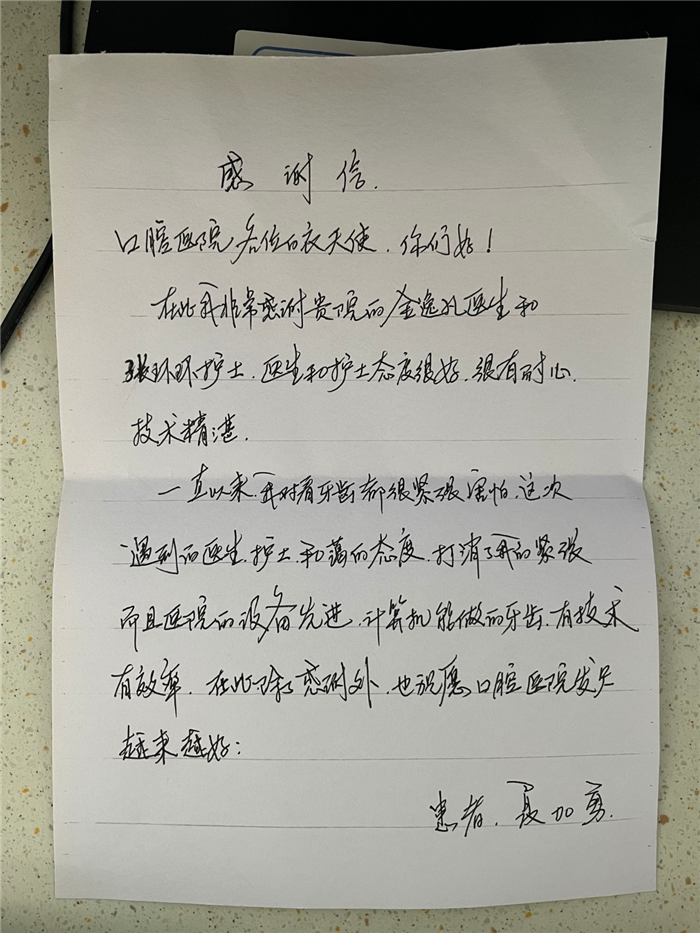 感谢信.
口腔医院各位白衣天使.你们好!
在此我非常感谢贵院的金逸孔医生和
张环环护士.医生和护士态度很好.很有耐心.
技术精湛.
一直以来.我对看牙齿都很紧张害怕.这次
遇到的医生.护士.和蔼的态度.打消了我的紧张
而且医院的设备先进.计算机能做的牙齿.有技术
有效率.在此除了感谢外.也祝愿口腔医院发展
越来越好:
患者.聂加勇.